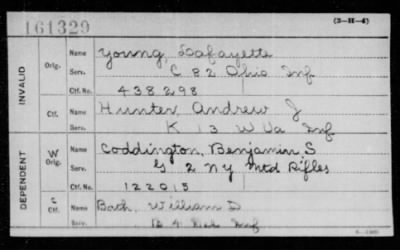 161329
(3-H-4)
INVALID
Orig.
Name Young, Lafayette
Serv. C 82 Ohio Inf
Ctf. No. 438298
Ctf.
Name Hunter, Andrew J
Serv. K 13 W Va Inf
DEPENDENT
W
Orig.
Name Coddington, Benjamin S
Serv. G 2 NY Mtd Rifles
Ctf. No. 122015
C
Ctf.
Name Bath, William D
Serv. B 4 Inf